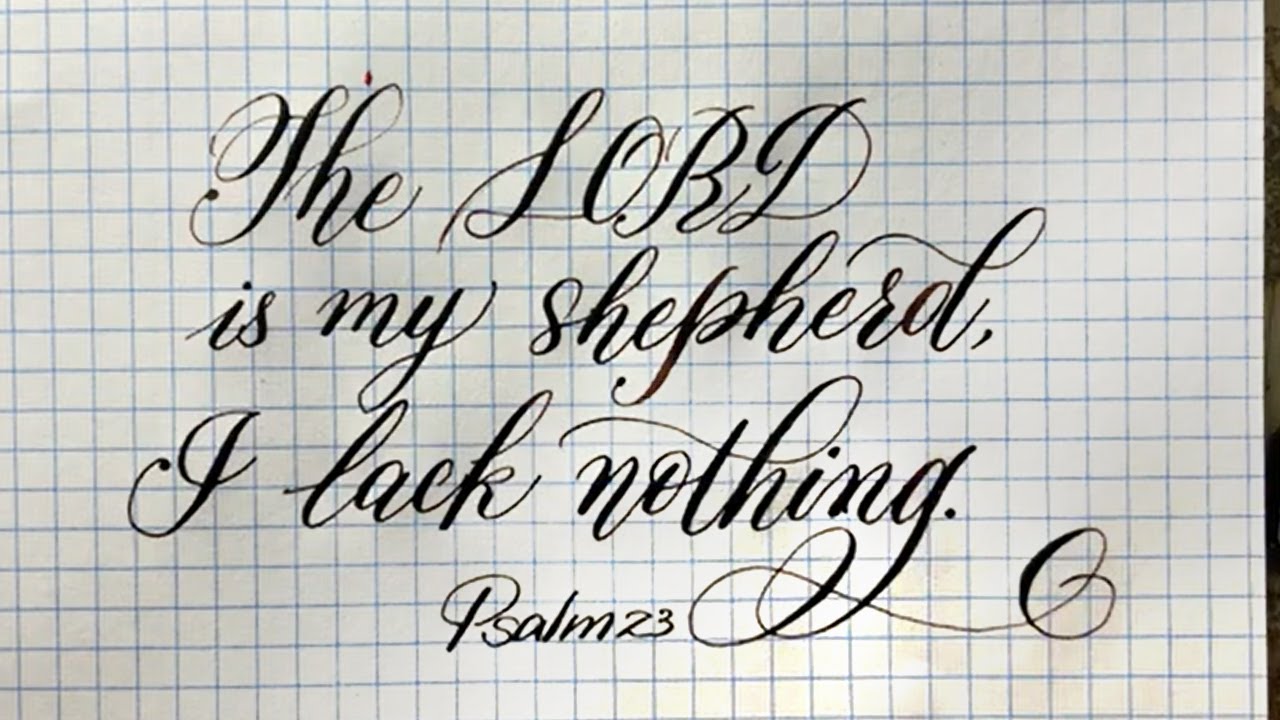 The LORD
is my shepherd,
I lack nothing.
Psalm 23